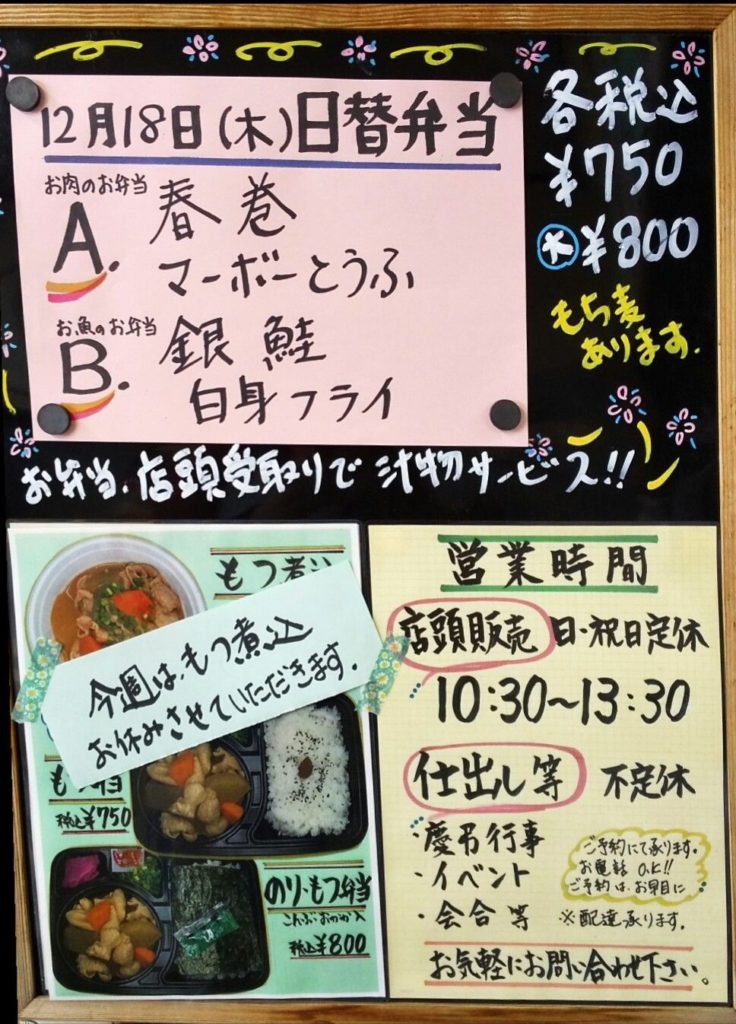 12月18日(木)日替弁当
お肉のお弁当
A. 春巻
マーボーとうふ
お魚のお弁当
B. 銀鮭
白身フライ
各税込
¥750
大¥800
もち麦
あります.
お弁当、店頭受取りで汁物サービス!!
もつ煮込
今週は、もつ煮込
お休みさせていただきます.
税込¥750
のり・もつ弁当
税込¥800
営業時間
店頭販売 日・祝日定休
10:30~13:30
仕出し等 不定休
・慶弔行事
・イベント
・会合等
ご予約にて承ります.
お電話 O.K!!
ご予約は、お早目に
※配達承ります.
お気軽にお問い合わせ下さい。